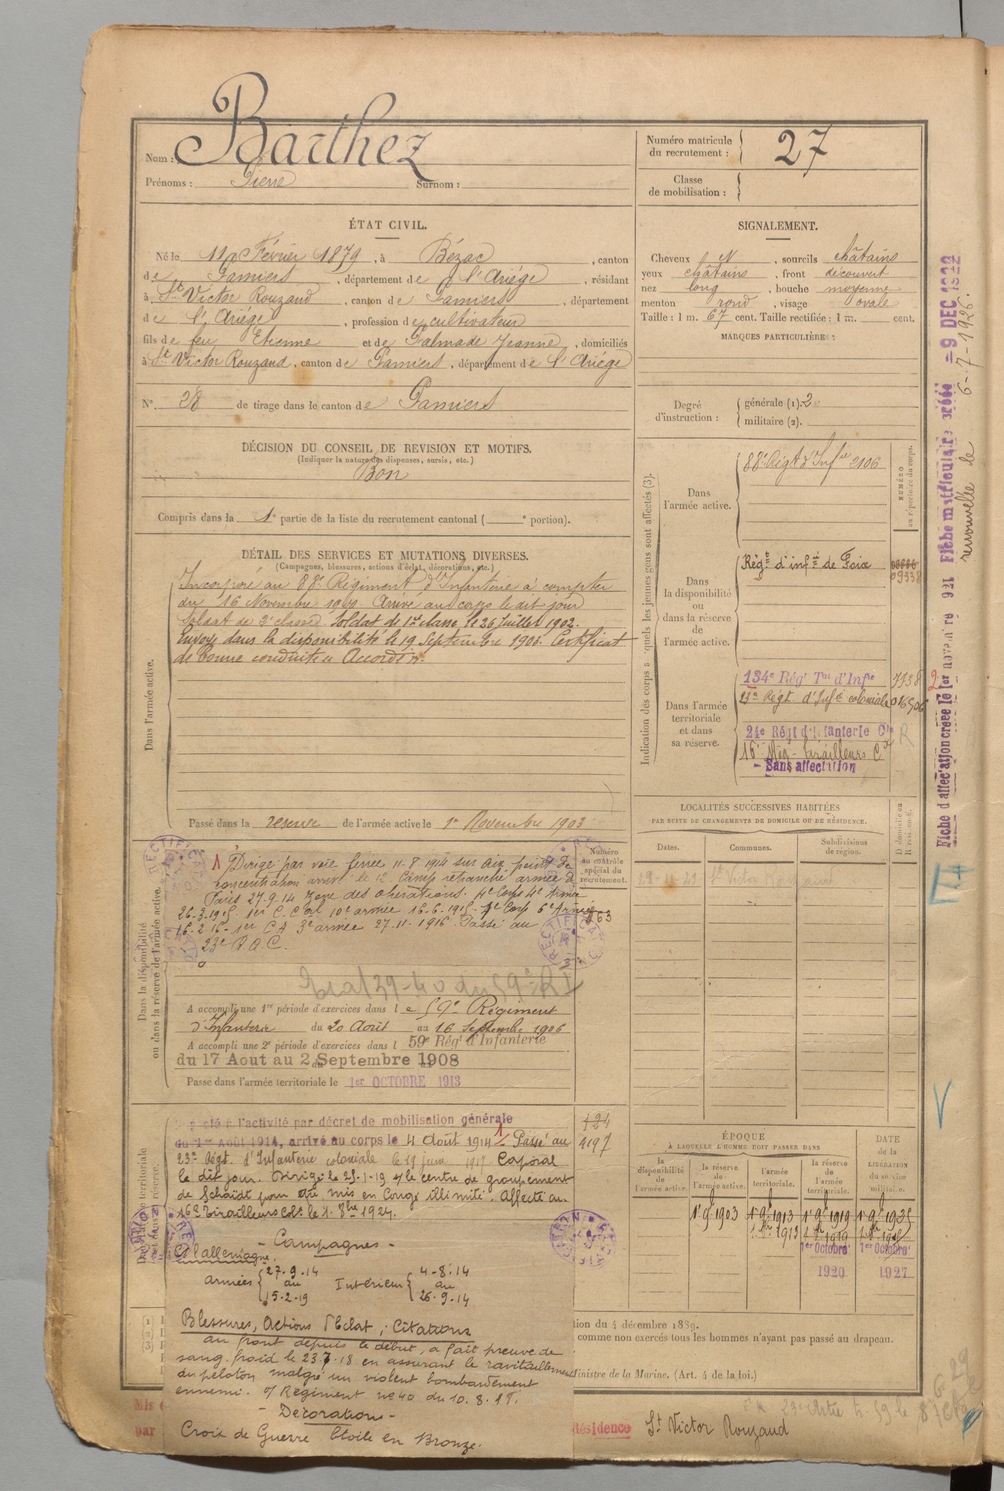 Nom : Barthez
Prénoms : Pierre Surnom :
Numéro matricule du recrutement : 27
Classe de mobilisation :
ÉTAT CIVIL.
Né le 11 Février 1879, à Bézac, canton
de Pamiers, département de l'Ariége, résidant
à St Victor Rouzaud, canton de Pamiers, département
de l'Ariége, profession de cultivateur
fils de feu Etienne et de Palmade Jeanne, domiciliés
à St Victor Rouzaud, canton de Pamiers, département de l'Ariége
N° 28 de tirage dans le canton de Pamiers
SIGNALEMENT.
Cheveux N, sourcils châtains
yeux châtains, front découvert
nez long, bouche moyenne
menton rond, visage ovale
Taille : 1 m. 67 cent. Taille rectifiée : 1 m. cent.
MARQUES PARTICULIÈRES :
Degré d'instruction : générale (1). 2
militaire (2).
DÉCISION DU CONSEIL DE REVISION ET MOTIFS.
(Indiquer la nature des dispenses, sursis, etc.)
Bon
Compris dans la 1e partie de la liste du recrutement cantonal ( e portion).
DÉTAIL DES SERVICES ET MUTATIONS DIVERSES.
(Campagnes, blessures, actions d'éclat, décorations, etc.)
Dans l'armée active.
Incorporé au 88e Régiment d'Infanterie à compter
du 16 Novembre 1900. Arrivé au corps le dit jour
Soldat de 2e classe. Soldat de 1re classe le 26 Juillet 1902.
Envoyé dans la disponibilité le 19 Septembre 1903. Certificat
de bonne conduite Accordé.
Passé dans la réserve de l'armée active le 1er Novembre 1903
Indication des corps auxquels les jeunes gens sont affectés (3).
NUMÉRO au répertoire du corps.
Dans l'armée active.
88e Régt d'Infie 2106
Dans la disponibilité ou dans la réserve de l'armée active.
Régt d'infie de Foix
09338
Dans l'armée territoriale et dans sa réserve.
134e Régt Tal d'Infie
23e Régt d'Infie coloniale
24e Régt d'Infanterie Cle
16e Rég. tirailleurs Cx
Sans affectation
LOCALITÉS SUCCESSIVES HABITÉES
PAR SUITE DE CHANGEMENTS DE DOMICILE OU DE RÉSIDENCE.
Dates. Communes. Subdivisions de région.
St Victor Rouzaud
Dans la disponibilité ou dans la réserve de l'armée active.
Numéro au contrôle spécial du recrutement.
Dirigé par voie ferrée 11-8-1914 sur
concentration armée
Paris 27.9.14 zone des opérations. 4e Corps 4e Armée
26.3.1915 1er C. Cal 10e armée 16-6-1915
1er CA 3e armée 27.11.1916 Passé au
23e R.A.C.
A accompli une 1re période d'exercices dans le 59e Régiment
d'Infanterie du 20 Août au 16 Septembre 1906
A accompli une 2e période d'exercices dans l 59e Régt d'Infanterie
du 17 Aout au 2 Septembre 1908
Passé dans l'armée territoriale le 1er OCTOBRE 1913
Rappelé à l'activité par décret de mobilisation générale
du 1er Août 1914, arrivé au corps le 4 Août 1914 Passé au
23e Régt. d'Infanterie coloniale le 19 juin 1917 Caporal
le dit jour. Dirigé le 25-1-19 s/ le centre de groupement
de pour être mis en Congé illimité. Affecté au
16e Tirailleurs cols le 1. 8bre 1924.
4197
ÉPOQUE
À LAQUELLE L'HOMME DOIT PASSER DANS
la disponibilité de l'armée active.
la réserve de l'armée active.
l'armée territoriale.
la réserve de l'armée territoriale.
DATE DE LA LIBÉRATION du service militaire.
1er Octobre 1920
1er Octobre 1927
- Campagnes -
C/ l'allemagne
armées 27-9-14 au 15-2-19 Intérieur 4-8-14 au 26-9-14
Blessures, Actions d'éclat, Citations
au front depuis le début, a fait preuve de
sang froid le 23.7.18 en assurant le ravitaillement
du peloton malgré un violent bombardement
ennemi. O/ Régiment n° 40 du 10.8.18.
- Décorations -
Croix de Guerre Etoile en Bronze.
tion du 4 décembre 1889.
comme non exercés tous les hommes n'ayant pas passé au drapeau.
Ministre de la Marine. (Art. 4 de la loi.)
Mis
par
Résidence St Victor Rouzaud
Fiche matriculaire créée -9 DEC 1922
renouvelée le 6-7-1926.